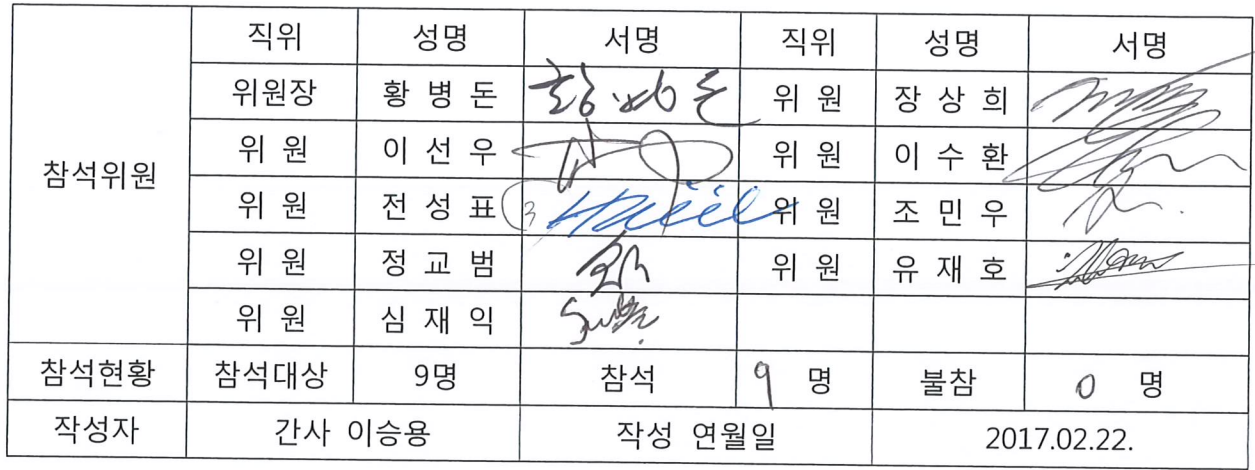 직위 성명 서명 직위 성명 서명
위원장 황 병 돈 위 원 장 상 희
위 원 이 선 우 위 원 이 수 환
참석위원
위 원 전 성 표 위 원 조 민 우
위 원 정 교 범 위 원 유 재 호
위 원 심 재 익
참석현황 참석대상 9명 참석 9 명 불참 0 명
작성자 간사 이승용 작성 연월일 2017.02.22.